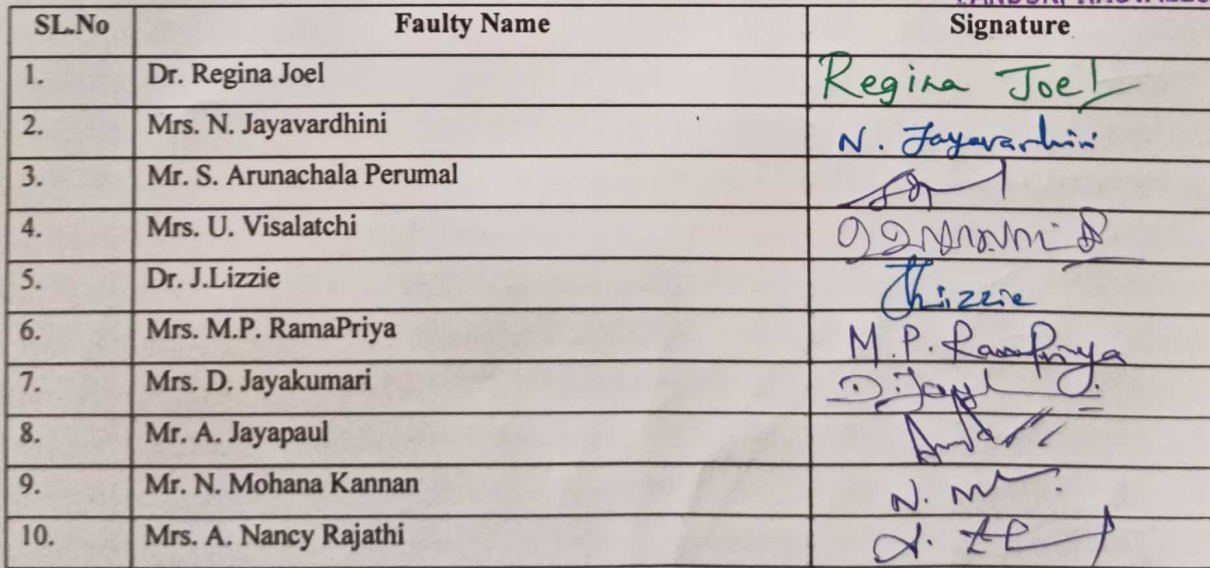 SL.No Faulty Name Signature
1. Dr. Regina Joel Regina Joel
2. Mrs. N. Jayavardhini N. Jayavardhini
3. Mr. S. Arunachala Perumal
4. Mrs. U. Visalatchi
5. Dr. J.Lizzie Lizzie
6. Mrs. M.P. RamaPriya M.P. RamaPriya
7. Mrs. D. Jayakumari
8. Mr. A. Jayapaul
9. Mr. N. Mohana Kannan N.
10. Mrs. A. Nancy Rajathi A.